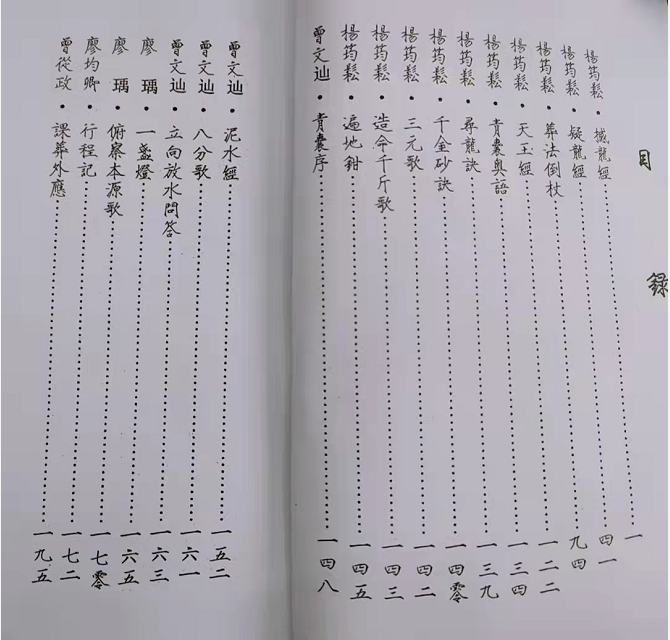 目錄
楊筠鬆・撼龍經……一
楊筠鬆・疑龍經……四一
楊筠鬆・葬法倒杖……九四
楊筠鬆・天玉經……一二二
楊筠鬆・青囊奧語……一三四
楊筠鬆・尋龍訣……一三九
楊筠鬆・千金砂訣……一四零
楊筠鬆・三元歌……一四二
楊筠鬆・造命千斤歌……一四三
楊筠鬆・遍地鉗……一四五
曾文辿・青囊序……一四八
曾文辿・泥水經……一五二
曾文辿・八分歌……一六一
曾文辿・立向放水問答……一六三
廖瑀・一盞燈……一六五
廖瑀・俯察本源歌……一七零
廖均卿・行程記……一七二
曾從政・課葬外應……一九五